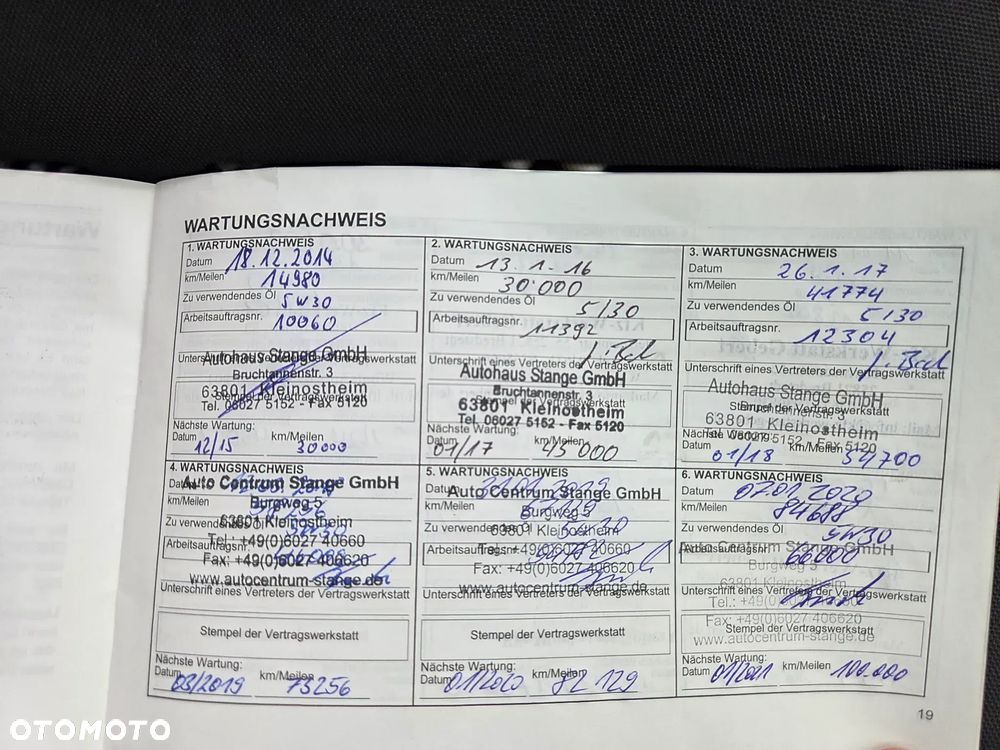 WARTUNGSNACHWEIS
1. WARTUNGSNACHWEIS
Datum 18.12.2014
km/Meilen 14980
Zu verwendendes Öl 5W30
Arbeitsauftragsnr. 10060
Unterschrift eines Vertreters der Vertragswerkstatt
Autohaus Stange GmbH
Bruchtannenstr. 3
63801 Kleinostheim
Stempel der Vertragswerkstatt
Tel. 06027 5152 - Fax 5120
Nächste Wartung:
Datum 12/15 km/Meilen 30000
2. WARTUNGSNACHWEIS
Datum 13.1.16
km/Meilen 30.000
Zu verwendendes Öl 5/30
Arbeitsauftragsnr. 11392
Unterschrift eines Vertreters der Vertragswerkstatt
Autohaus Stange GmbH
Bruchtannenstr. 3
Stempel der Vertragswerkstatt
63801 Kleinostheim
Tel. 06027 5152 - Fax 5120
Nächste Wartung:
Datum 01/17 km/Meilen 45000
3. WARTUNGSNACHWEIS
Datum 26.1.17
km/Meilen 41774
Zu verwendendes Öl 5/30
Arbeitsauftragsnr. 12304
Unterschrift eines Vertreters der Vertragswerkstatt
Autohaus Stange GmbH
Bruchtannenstr. 3
Stempel der Vertragswerkstatt
63801 Kleinostheim
Tel. 06027 5152 - Fax 5120
Nächste Wartung:
Datum 01/18 km/Meilen
4. WARTUNGSNACHWEIS
Datum
Auto Centrum Stange GmbH
km/Meilen
Burgweg 5
Zu verwendendes Öl
63801 Kleinostheim
Tel.: +49(0)6027 40660
Arbeitsauftragsnr.
Fax: +49(0)6027 406620
www.autocentrum-stange.de
Unterschrift eines Vertreters der Vertragswerkstatt
Stempel der Vertragswerkstatt
Nächste Wartung:
Datum 03/2019 km/Meilen 73256
5. WARTUNGSNACHWEIS
Datum
Auto Centrum Stange GmbH
km/Meilen
Burgweg 5
Zu verwendendes Öl
63801 Kleinostheim
Arbeitsauftragsnr.
Tel.: +49(0)6027 40660
Fax: +49(0)6027 406620
www.autocentrum-stange.de
Unterschrift eines Vertreters der Vertragswerkstatt
Stempel der Vertragswerkstatt
Nächste Wartung:
Datum 01/2020 km/Meilen 82129
6. WARTUNGSNACHWEIS
Datum 07.01.2020
km/Meilen 84688
Zu verwendendes Öl 5W30
Auto Centrum Stange GmbH
Arbeitsauftragsnr.
Burgweg 5
63801 Kleinostheim
Unterschrift eines Vertreters der Vertragswerkstatt
Tel.: +49(0)6027 40660
Fax: +49(0)6027 406620
Stempel der Vertragswerkstatt
www.autocentrum-stange.de
Nächste Wartung:
Datum 01/2021 km/Meilen 100.000
19
OTOMOTO